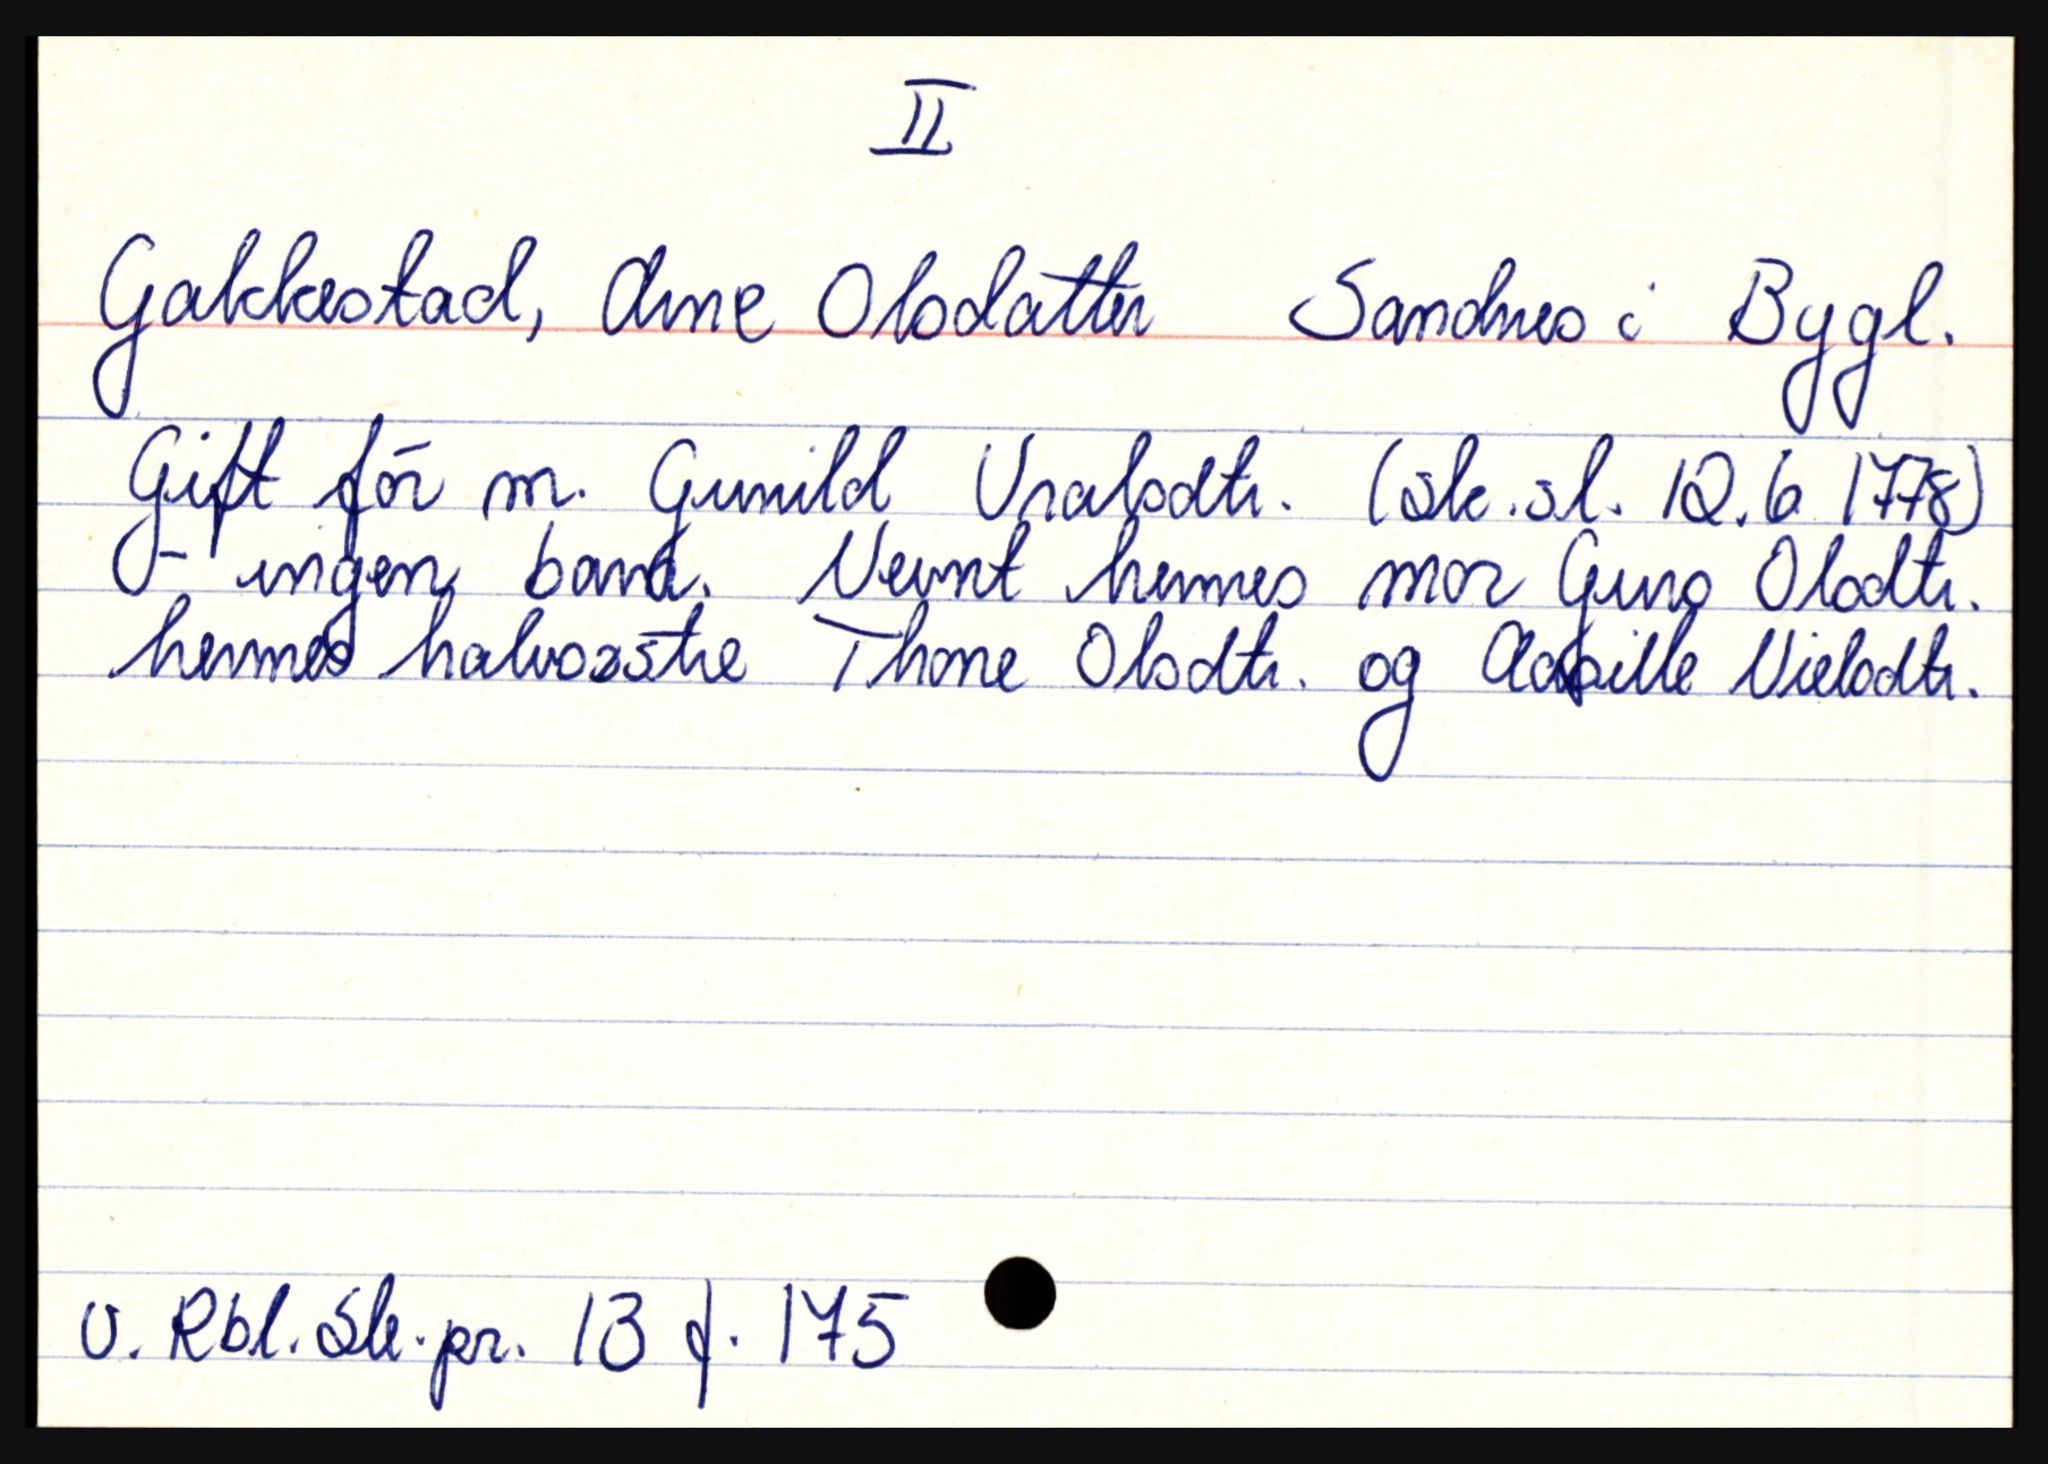 II
Gakkestad, Arne Olsdatter Sandnes i Bygl.
Gift för m. Gunild Vralsdtr. (sk.sl. 12.6 1778)
- ingen barn. Nevnt hennes mor Guro Olsdtr.
hennes halvsøstre Thone Olsdtr. og Aasille Nielsdtr.
v. Rbl. Sk.pr. 13 f. 175